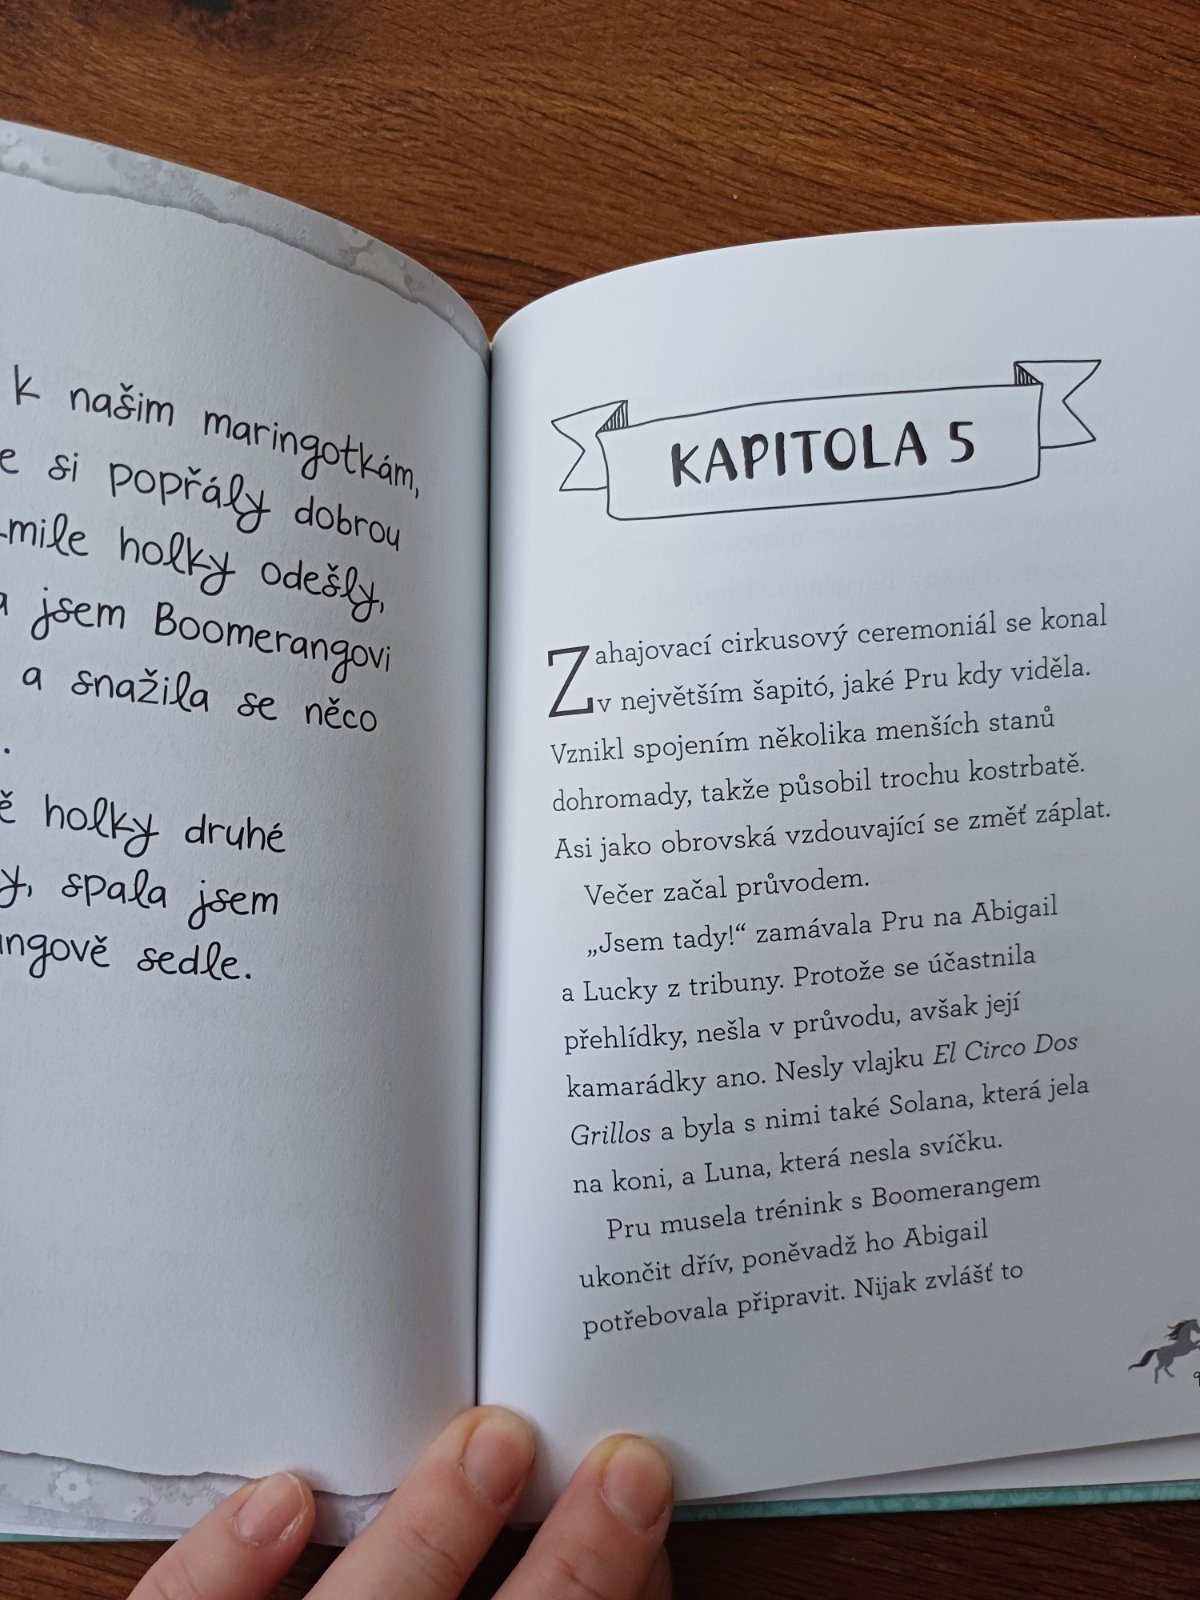 k našim maringotkám,
si popřály dobrou
holky odešly,
jsem Boomerangovi
a snažila se něco
.
holky druhé
spala jsem
sedle.
KAPITOLA 5
Zahajovací cirkusový ceremoniál se konal
v největším šapitó, jaké Pru kdy viděla.
Vznikl spojením několika menších stanů
dohromady, takže působil trochu kostrbatě.
Asi jako obrovská vzdouvající se změť záplat.
Večer začal průvodem.
„Jsem tady!“ zamávala Pru na Abigail
a Lucky z tribuny. Protože se účastnila
přehlídky, nešla v průvodu, avšak její
kamarádky ano. Nesly vlajku El Circo Dos
Grillos a byla s nimi také Solana, která jela
na koni, a Luna, která nesla svíčku.
Pru musela trénink s Boomerangem
ukončit dřív, poněvadž ho Abigail
potřebovala připravit. Nijak zvlášť to